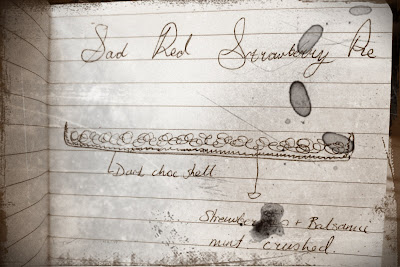 Sad Red Strawberry Pie
Dark choc shell
+ Balsamic
mint crushed.